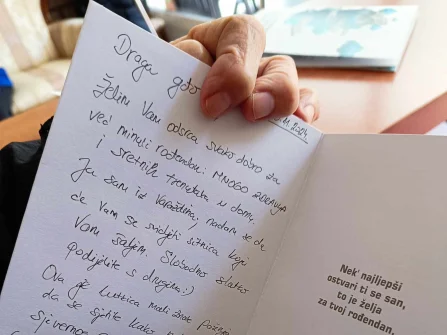 Draga gđo
Želim Vam odsrca svako dobro za
već minuli rođendan: MNOGO
i sretnih trenutaka u domu,
Ja sam iz Varaždina, nadam se da
će vam se svidjeti sitnica koju
Vam šaljem. Slobodno slatko
podijelite s drugima:)
Ova gđe
da se sjetite kako
sjeverno
Nek' najljepši
ostvari ti se san,
to je želja
za tvoj rođendan.